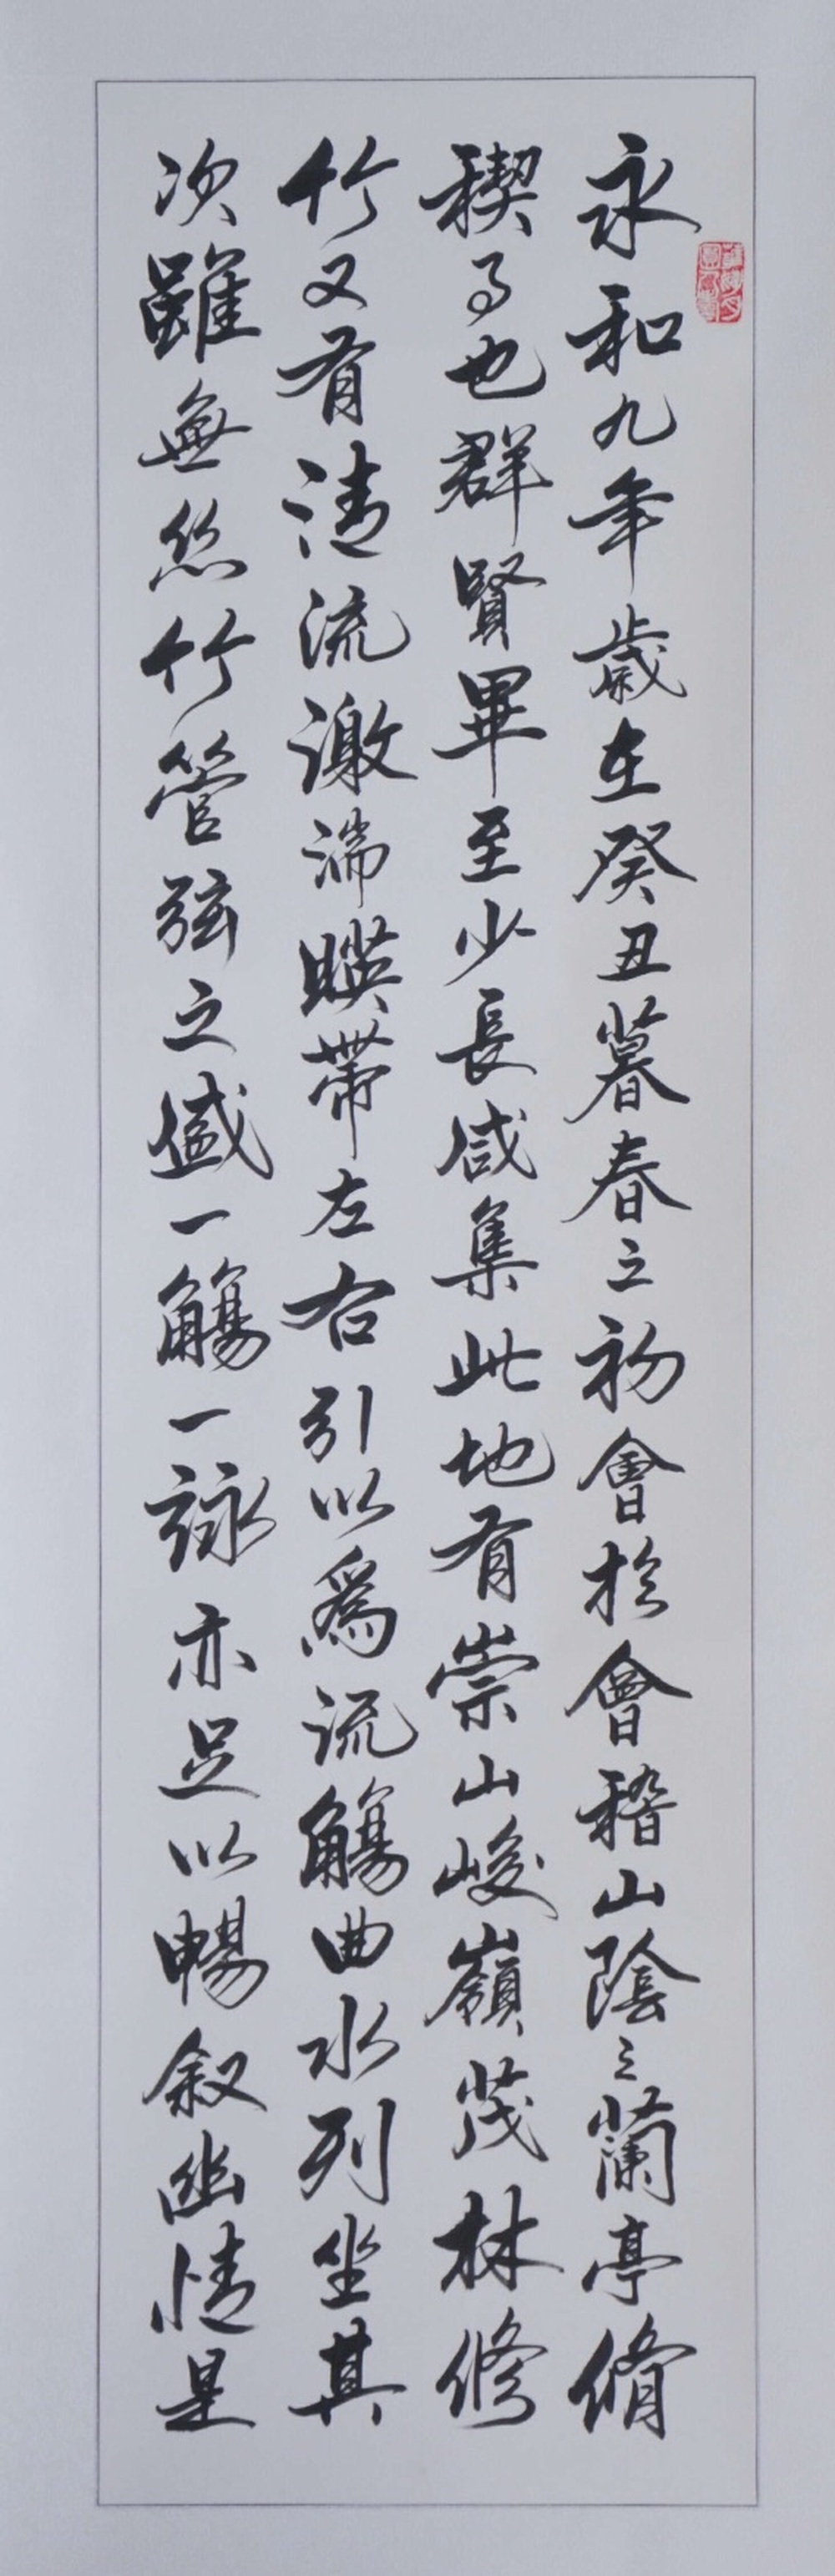 永和九年歲在癸丑暮春之初會於會稽山陰之蘭亭脩
稧事也群賢畢至少長咸集此地有崇山峻嶺茂林修
竹又有清流激湍暎帶左右引以為流觴曲水列坐其
次雖無絲竹管弦之盛一觴一詠亦足以暢叙幽情是